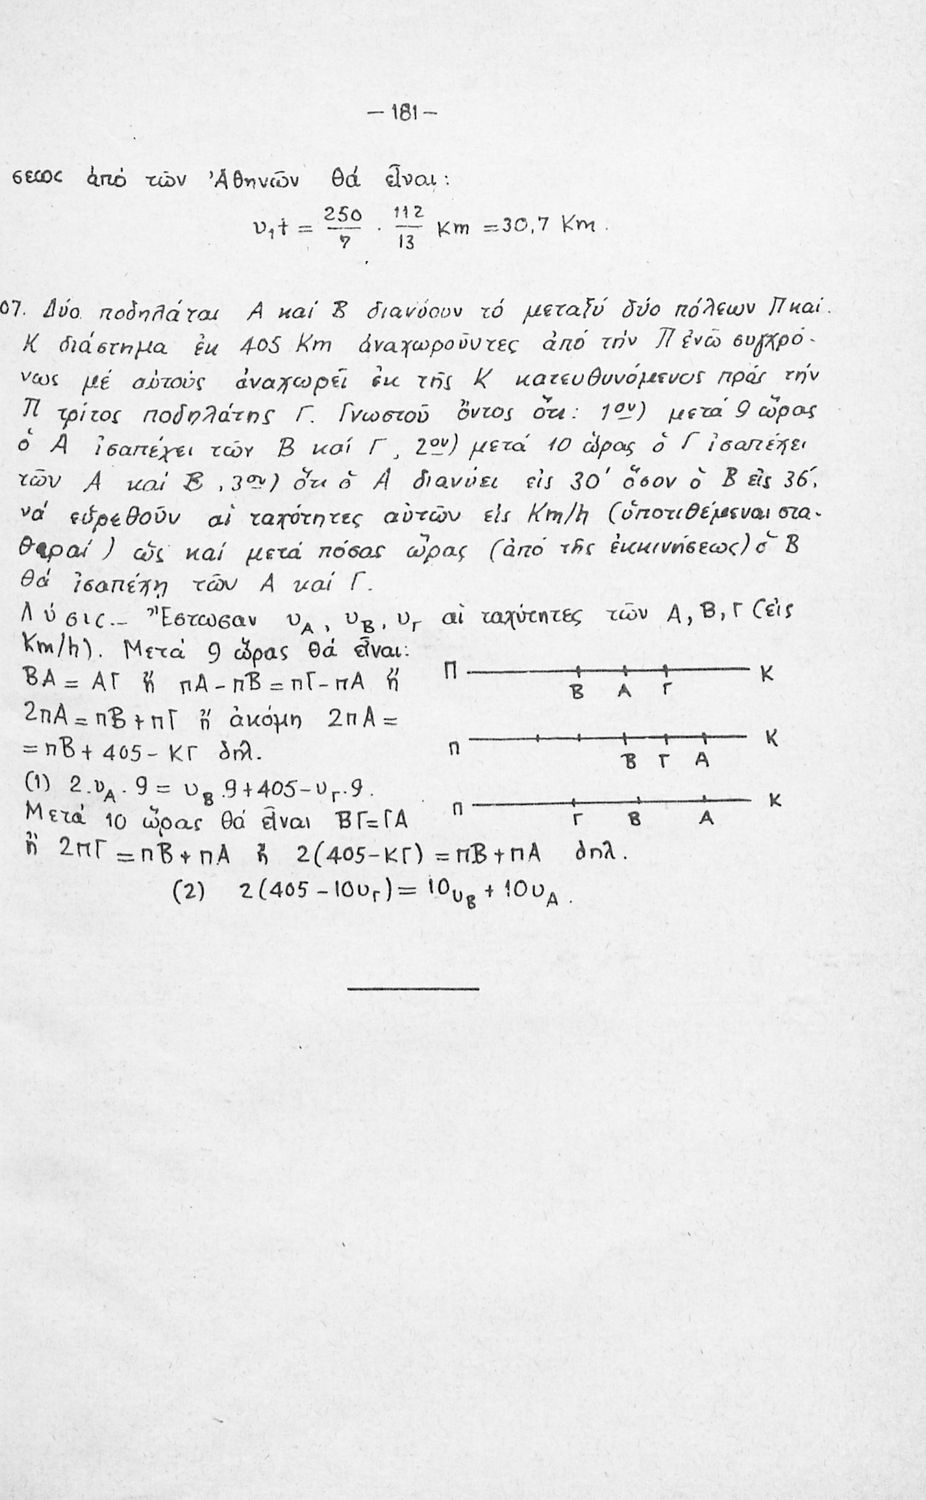 — 181 —
σεως ἀπό τῶν Ἀθηνῶν θά εἶναι:
υ₁t = 250/7 · 112/13 Km = 30,7 Km.
07. Δύο ποδηλάται Α καί Β διανύουν τό μεταξύ δύο πόλεων Π καί
Κ διάστημα ἐκ 405 Km ἀναχωροῦντες ἀπό τήν Π ἐνῶ συγχρό-
νως μέ αὐτούς ἀναχωρεῖ ἐκ τῆς Κ κατευθυνόμενος πρός τήν
Π τρίτος ποδηλάτης Γ. Γνωστοῦ ὄντος ὅτι: 1ον) μετά 9 ὥρας
ὁ Α ἰσαπέχει τῶν Β καί Γ, 2ον) μετά 10 ὥρας ὁ Γ ἰσαπέχει
τῶν Α καί Β, 3ον) ὅτι ὁ Α διανύει εἰς 30' ὅσον ὁ Β εἰς 36',
νά εὑρεθοῦν αἱ ταχύτητες αὐτῶν εἰς Km/h (ὑποτιθέμεναι στα-
θεραί) ὡς καί μετά πόσας ὥρας (ἀπό τῆς ἐκκινήσεως) ὁ Β
θά ἰσαπέχῃ τῶν Α καί Γ.
Λύσις.- Ἔστωσαν υ_Α, υ_Β, υ_Γ αἱ ταχύτητες τῶν Α, Β, Γ (εἰς
Km/h). Μετά 9 ὥρας θά εἶναι:
ΒΑ = ΑΓ ἤ πΑ - πΒ = πΓ - πΑ ἤ
2πΑ = πΒ + πΓ ἤ ἀκόμη 2πΑ =
= πΒ + 405 - ΚΓ δηλ.
(1) 2.υ_Α. 9 = υ_Β.9 + 405 - υ_Γ.9.
Μετά 10 ὥρας θά εἶναι ΒΓ = ΓΑ
Π Β Α Γ Κ
π Β Γ Α Κ
π Γ Β Α Κ
ἤ 2πΓ = πΒ + πΑ ἤ 2(405 - ΚΓ) = πΒ + πΑ δηλ.
(2) 2(405 - 10υ_Γ) = 10υ_Β + 10υ_Α.